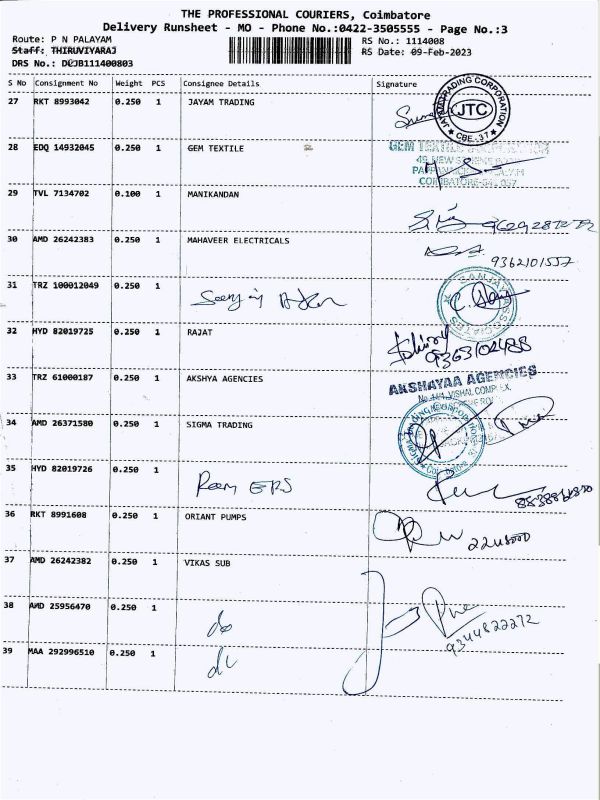 THE PROFESSIONAL COURIERS, Coimbatore
Delivery Runsheet - MO - Phone No.:0422-3505555 - Page No.:3
Route: P N PALAYAM RS No.: 1114008
Staff: THIRUVIYARAJ RS Date: 09-Feb-2023
DRS No.: DCJB111400803
S No Consignment No Weight PCS Consignee Details Signature
27 RKT 8993042 0.250 1 JAYAM TRADING
JTC
CBE-37
28 EDQ 14932045 0.250 1 GEM TEXTILE
GEM TEXTILE
29 TVL 7134702 0.100 1 MANIKANDAN
30 AMD 26242383 0.250 1 MAHAVEER ELECTRICALS
9362101557
31 TRZ 100012049 0.250 1
32 HYD 82019725 0.250 1 RAJAT
33 TRZ 61000187 0.250 1 AKSHYA AGENCIES
AKSHAYAA AGENCIES
34 AMD 26371580 0.250 1 SIGMA TRADING
35 HYD 82019726 0.250 1
36 RKT 8991608 0.250 1 ORIANT PUMPS
37 AMD 26242382 0.250 1 VIKAS SUB
38 AMD 25956470 0.250 1 do
9344822272
39 MAA 292996510 0.250 1